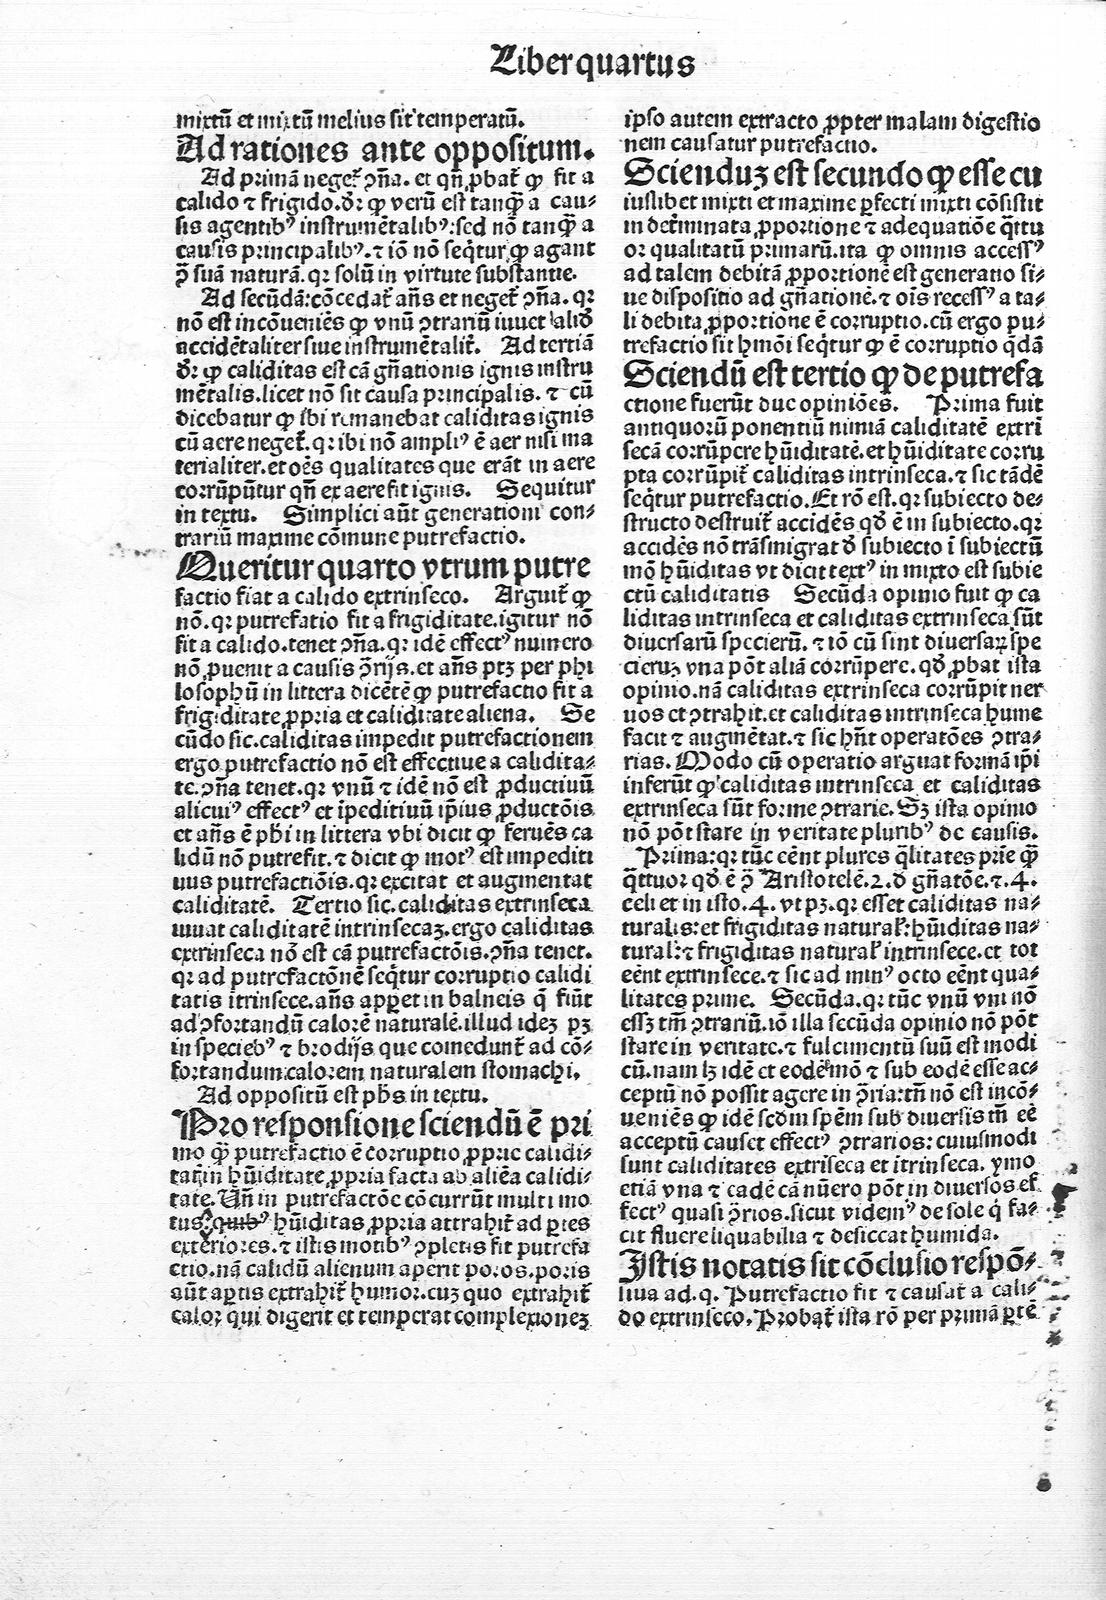 Liber quartus
mixtū et mixtū melius sit temperatū.
Ad rationes ante oppositum.
Ad primā neget̄ ꝯña. et qñ ꝓbat̄ ꝙ fit a
calido ⁊ frigido. dr̄ ꝙ verū est tanꝙ̄ a cau⸗
sis agentibꝰ instrumētalibꝰ: sed nō tanꝙ̄ a
causis principalibꝰ. ⁊ iō nō seqt̄ur ꝙ agant
ꝯ̄ suā naturā. qꝛ solū in virtute substantie.
Ad secūdā: cōcedat̄ añs et neget̄ ꝯña. qꝛ
nō est incōueniēs ꝙ vnū ꝯtrariū iuuet aliđ
accidētaliter siue instrumētalit̄. Ad tertiā
dr̄ ꝙ caliditas est cā gñationis ignis instru
mētalis. licet nō sit causa principalis. ⁊ cū
dicebatur ꝙ ibi remanebat caliditas ignis
cū aere neget̄. qꝛ ibi nō ampliꝰ ē aer nisi ma
terialiter. et oēs qualitates que erāt in aere
corrūpūtur qñ ex aere fit ignis. Sequitur
in textu. Simplici aūt generationi con⸗
trariū maxime cōmune putrefactio.
Queritur quarto vtrum putre
factio fiat a calido extrinseco. Arguit̄ ꝙ
nō. qꝛ putrefatio fit a frigiditate. igitur nō
fit a calido. tenet ꝯña. qꝛ idē effectꝰ numero
nō ꝓuenit a causis ꝯ̄rijs. et añs ptꝫ per phi
losophū in littera dicētē ꝙ putrefactio fit a
frigiditate ꝓpria et caliditate aliena. Se
cūdo sic. caliditas impedit putrefactionem
ergo putrefactio nō est effectiue a calidita⸗
te. ꝯña tenet. qꝛ vnū ⁊ idē nō est ꝓductiuū
alicuiꝰ effectꝰ et īpeditiuū ip̄ius ꝓductōis
et añs ē phi in littera vbi dicit ꝙ feruēs ca
lidū nō putrefit. ⁊ dicit ꝙ motꝰ est impediti
uus putrefactiōis. qꝛ excitat et augmentat
caliditatē. Tertio sic. caliditas extrinseca
iuuat caliditatē intrinsecaꝫ. ergo caliditas
extrinseca nō est cā putrefactōis. ꝯña tenet.
qꝛ ad putrefactōnē seqt̄ur corruptio calidi
tatis ītrinsece. añs apꝑet in balneis q̄ fiūt
ad ꝯfortandū calorē naturalē. illud ideꝫ pꝫ
in speciebꝰ ⁊ brodijs que comedunt̄ ad cō⸗
fortandum calorem naturalem stomachi.
Ad oppositū est phs in textu.
Pro responsione sciendū ē pri
mo ꝙ putrefactio ē corruptio ꝓprie calidi⸗
tatis in hūiditate ꝓpria facta ab aliēa calidi⸗
tate. Un̄ in putrefactōe cōcurrūt multi mo
tus. quibꝰ hūiditas ꝓpria attrahit̄ ad ꝑtes
exteriores. ⁊ istis motibꝰ ꝯpletis fit putrefa
ctio. nā calidū alienum aperit poros. poris
aūt aꝑtis extrahit̄ humor. cuꝫ quo extrahit̄
calor qui digerit et temperat complexioneꝫ
ipso autem extracto ꝓpter malam digestio
nem causatur putrefactio.
Sciendūꝫ est secundo ꝙ esse cu
iuslibet mixti et maxime ꝑfecti mixti cōsistit
in det̄minata ꝓportione ⁊ adequatiōe q̄ttu
or qualitatū primarū. ita ꝙ omnis accessꝰ
ad talem debitā ꝓportionē est generatio si⸗
ue dispositio ad gñationē. ⁊ oīs recessꝰ a ta⸗
li debita ꝓportione ē corruptio. cū ergo pu⸗
trefactio sit hmōi seqt̄ur ꝙ ē corruptio q̄dā
Sciendū est tertio ꝙ de putrefa
ctione fuerūt due opiniōes. Prima fuit
antiquorū ponentiū nimiā caliditatē extrī
secā corrūpere hūiditatē. et hūiditate corru
pta corrūpit̄ caliditas intrinseca. ⁊ sic tādē
seqt̄ur putrefactio. Et rō est. qꝛ subiecto de⸗
structo destruit̄ accidēs qđ ē in subiecto. qꝛ
accidēs nō trāsmigrat đ subiecto ī subiectū
mō hūiditas vt dicit textꝰ in mixto est subie
ctū caliditatis Secūda opinio fuit ꝙ ca
liditas intrinseca et caliditas extrinseca sūt
diuersarū specierū. ⁊ iō cū sint diuersaꝝ spe
cieruꝫ vna pōt aliā corrūpere. qđ ꝓbat ista
opinio. nā caliditas extrinseca corrūpit ner
uos et ꝯtrahit. et caliditas intrinseca hume
facit ⁊ augmētat. ⁊ sic hn̄t operatōes ꝯtra⸗
rias. Modo cū operatio arguat formā ip̄i
inferūt ꝙ caliditas intrinseca et caliditas
extrinseca sūt forme ꝯtrarie. Sꝫ ista opinio
nō pōt stare in veritate pluribꝰ de causis.
Prima: qꝛ tūc eēnt plures q̄litates prīe ꝙ̄
q̄ttuor qđ ē ꝯ̄ Aristotelē. 2. đ gñatōe. ⁊. 4.
celi et in isto. 4. vt pꝫ. qꝛ esset caliditas na⸗
turalis: et frigiditas natural̄: hūiditas na⸗
tural̄: ⁊ frigiditas natural̄ intrinsece. et tot
eēnt extrinsece. ⁊ sic ad minꝰ octo eēnt qua⸗
litates prime. Secūda. qꝛ tūc vnū vni nō
essꝫ tm̄ ꝯtrariū. iō illa secūda opinio nō pōt
stare in veritate. ⁊ fulcimentū suū est modi
cū. nam lꝫ idē et eodē mō ⁊ sub eodē esse ac⸗
ceptū nō possit agere in ꝯ̄ria: tn̄ nō est incō⸗
ueniēs ꝙ idē scdm spēm sub diuersis tn̄ eē
acceptū causet effectꝰ ꝯtrarios: cuiusmodi
sunt caliditates extrīseca et ītrinseca. ymo
etiā vna ⁊ eadē cā nūero pōt in diuersos ef
fectꝰ quasi ꝯ̄rios. sicut videmꝰ de sole q̄ fa⸗
cit fluere liquabilia ⁊ desiccat humida.
Istis notatis sit cōclusio respō⸗
siua ad. q. Putrefactio fit ⁊ causat̄ a cali⸗
do extrinseco. Probat̄ ista rō per primā ꝑtē